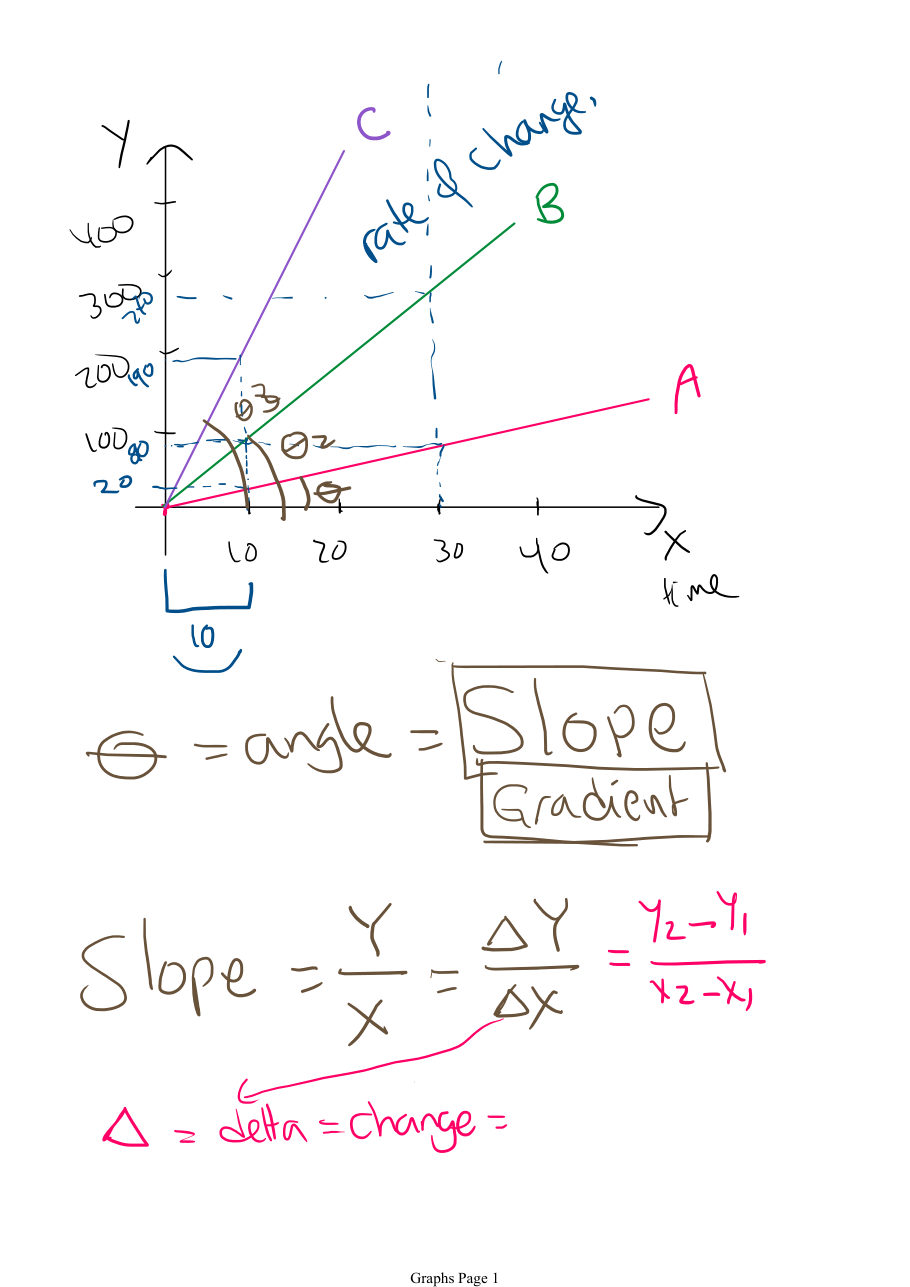 C
Y
rate of change,
B
400
300
270
200
190
A
θ3
100
80
θ2
20
θ
10 20 30 40
X
time
10
θ = angle = Slope
Gradient
Slope = Y/X = ΔY/ΔX = Y2-Y1/x2-x1
Δ = delta = change =
Graphs Page 1